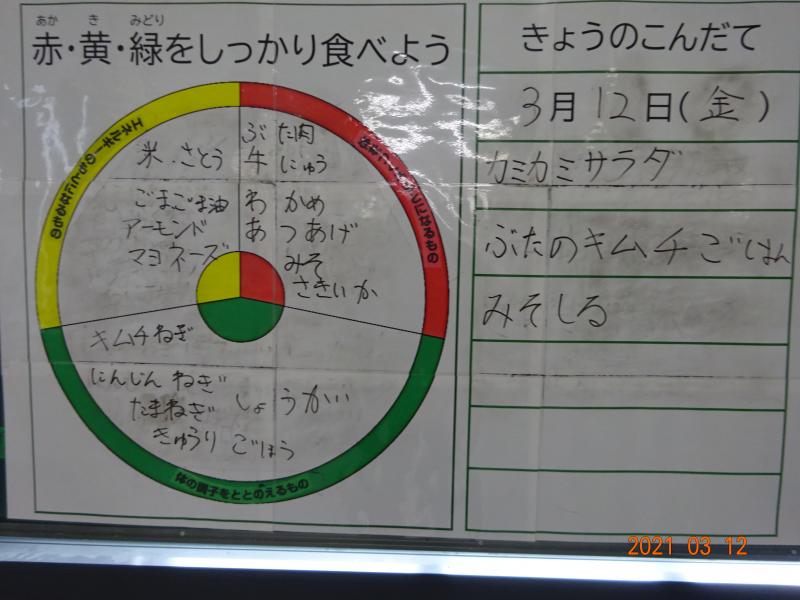 あか き みどり
赤・黄・緑をしっかり食べよう
エネルギーのもとになるもの
米、さとう
ごまごま油
アーモンド
マヨネーズ
ぶた肉
牛にゅう
わかめ
あつあげ
みそ
さきいか
キムチねぎ
にんじんねぎ
たまねぎ しょうが
きゅうり ごぼう
体の調子をととのえるもの
きょうのこんだて
3月12日(金)
カミカミサラダ
ぶたのキムチごはん
みそしる
2021 03 12